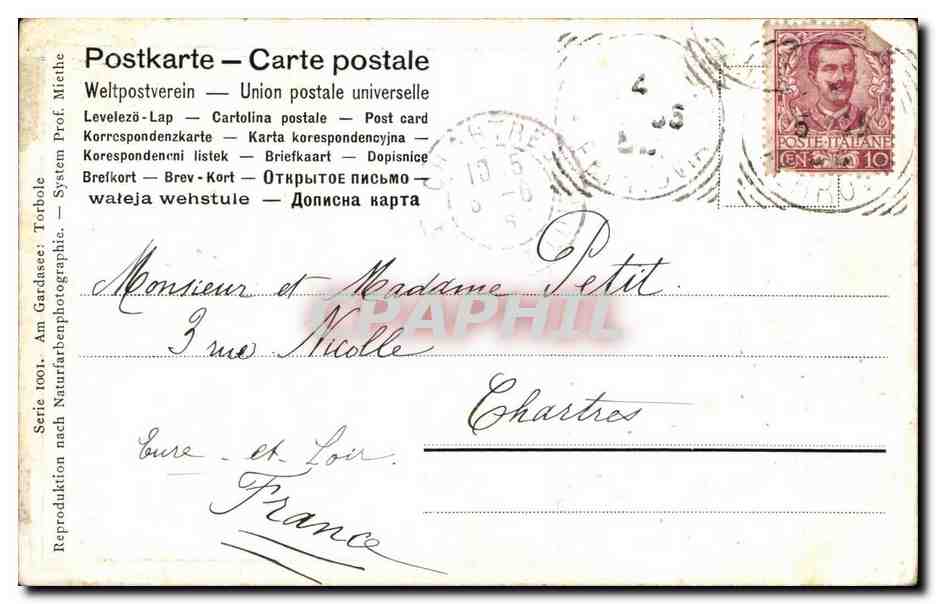 Postkarte – Carte postale
Weltpostverein — Union postale universelle
Levelezö-Lap — Cartolina postale — Post card
Korrespondenzkarte — Karta korespondencyjna —
Korespondencni listek — Briefkaart — Dopisnice
Brefkort — Brev-Kort — Открытое письмо —
wałeja wehstule — Дописна карта
Serie 1001. Am Gardasee: Torbole
Reproduktion nach Naturfarbenphotographie. — System Prof. Miethe
POSTE ITALIANE
CENT 10
Monsieur et Madame Petit.
3 rue Nicolle
Chartres
Eure - et - Loir.
France
CPAPHIL